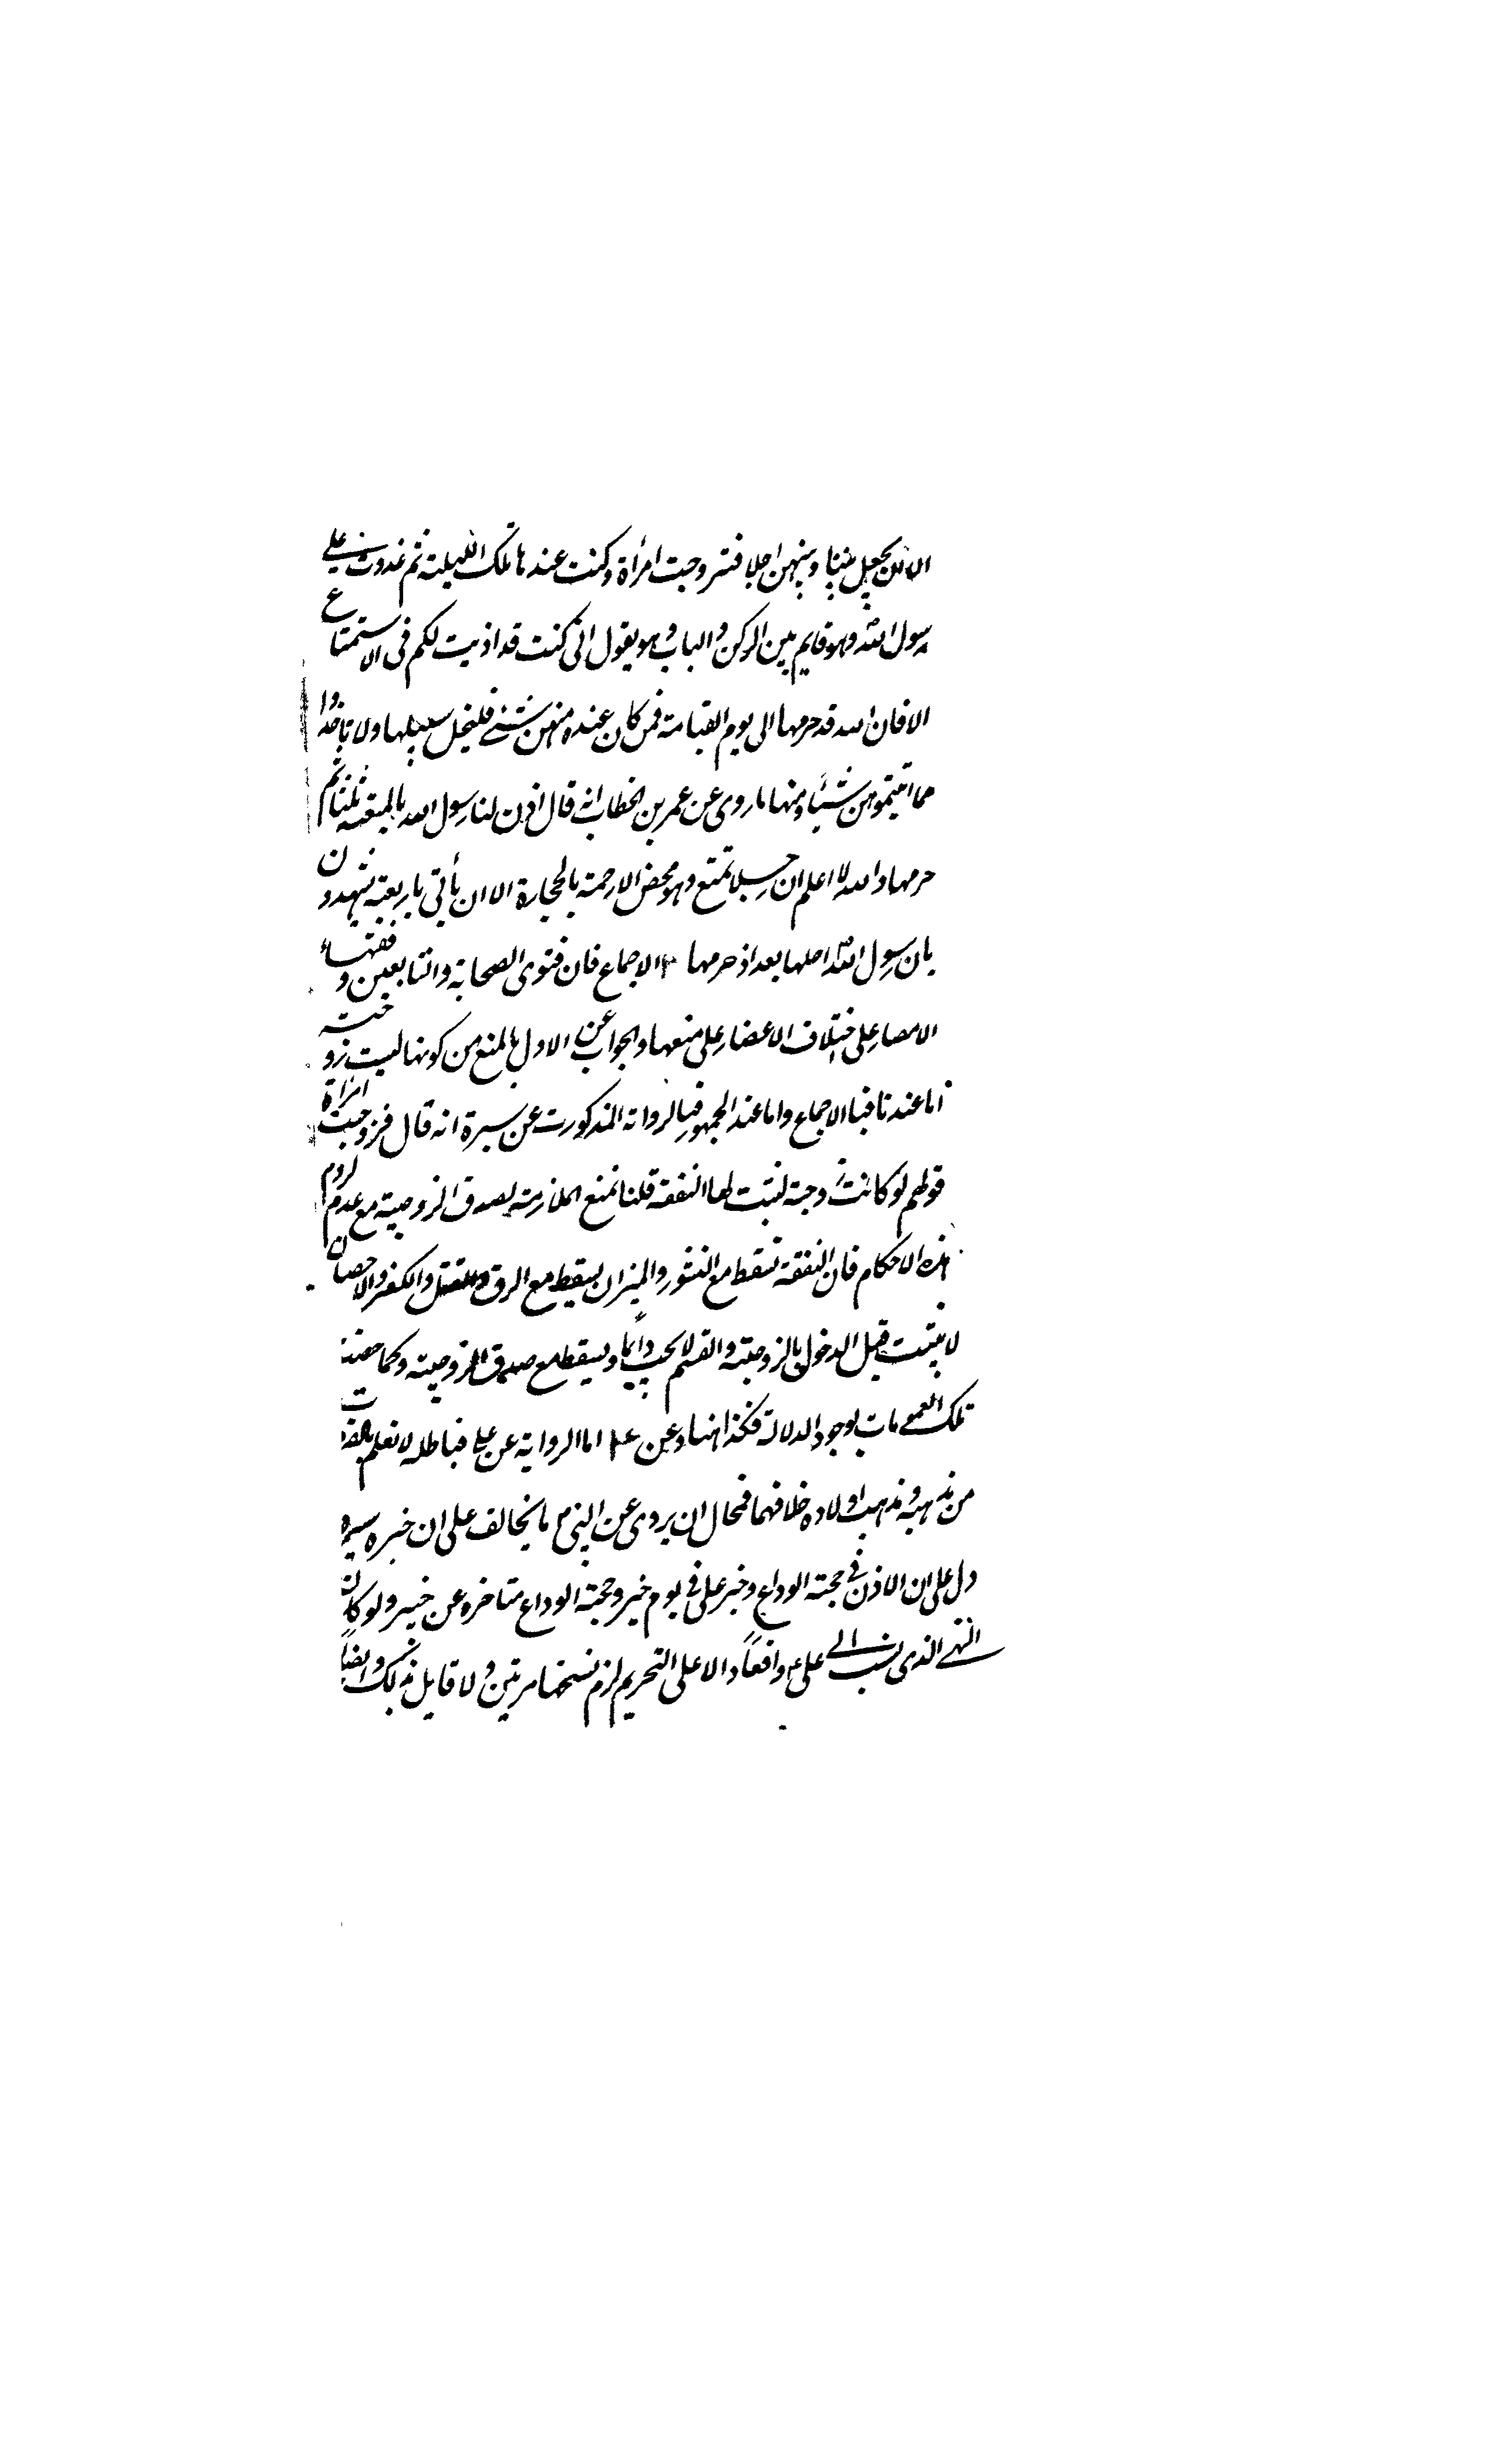 الا ان يجعل بيننا وبينهن اجلا فتزوجت امرأة وكنت عندها تلك الليلة ثم غدوت على
رسول الله وهو قايم بين الركن والباب وهو يقول انى كنت قد اذنت لكم فى الاستمتاع
الا فان الله قد حرمها الى يوم القيامة فمن كان عنده منهن شئ فليخل سبيلها ولا تاخذوا
مما اتيتموهن شيئا ومنها ما روى عن عمر بن الخطاب انه قال اذن لنا رسول الله بالمتعة ثلثا ثم
حرمها والله لا اعلم ان رجلا تمتع وهو محصن الا رجمته بالحجارة الا ان يأتى باربعة يشهدون
بان رسول الله احلها بعد اذ حرمها الاجماع فان فتوى الصحابة والتابعين وفقهاء
الامصار على اختلاف الاعصار على منعها والجواب عن الاول بالمنع من كونها ليست زوجته
اما عندنا فبالاجماع واما عند الجمهور فبالرواية المذكورت عن سبرة انه قال فزوجت امراة
قولهم لو كانت زوجته لثبت لها النفقة قلنا نمنع الملازمة لصدق الزوجية مع عدم لزوم
هذه الاحكام فان النفقة تسقط مع النشوز والميراث يسقط مع الرق والقتل والكفر والاحصان
لا يثبت قبل الدخول بالزوجته والقسم لا يجب دائما ويسقط مع صدق الزوجية وكما خصت
تلك العمومات لوجود الدلالة فكذا هنا وعن اما الرواية عن على فباطله لا نعلم
من مذهبه ومذهب اولاده خلافهما فمحال ان يروى عن النبى م ما يخالف على ان خبره سبره
دل على ان الاذن فى حجة الوداع وخبر على فى يوم خيبر وحجة الوداع متاخره عن خيبر ولو كان
النهى الذى نسب الى على ع واقعا دالا على التحريم لزم نسخها مرتين ولا قايل بذلك وايضا